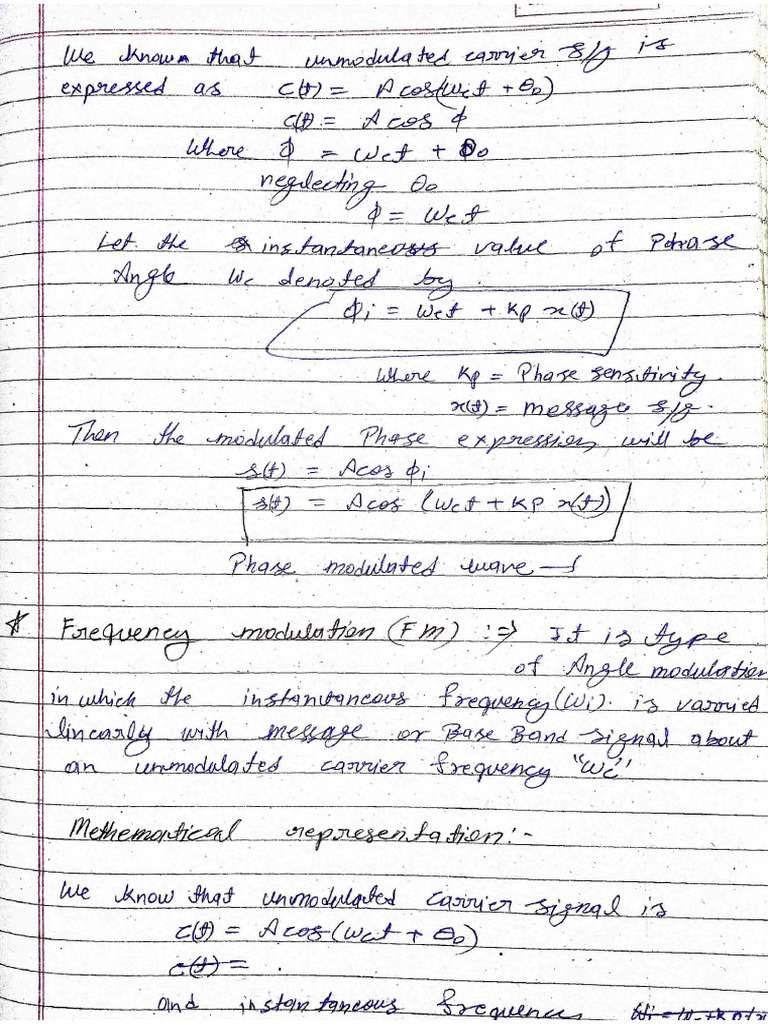 We known that unmodulated carrier s/g is
expressed as c(t) = A cos(wct + θ0)
c(t) = A cos ϕ
Where ϕ = wct + θ0
neglecting θ0
ϕ = wct
Let the instantaneous value of Phase
Angle We denoted by.
ϕi = wct + Kp x(t)
Where Kp = Phase sensitivity.
x(t) = message s/g.
Then the modulated Phase expression will be
s(t) = A cos ϕi
s(t) = A cos (wct + Kp x(t))
Phase modulated wave
* Frequency modulation (FM) :⇒ It is type
of Angle modulation
in which the instantaneous frequency (wi). is varried
linearly with message or Base Band signal about
an unmodulated carrier frequency "wc"
Methematical representation:-
We know that unmodulated carrier signal is
c(t) = A cos(wct + θ0)
c(t) = .
and instantaneous frequency